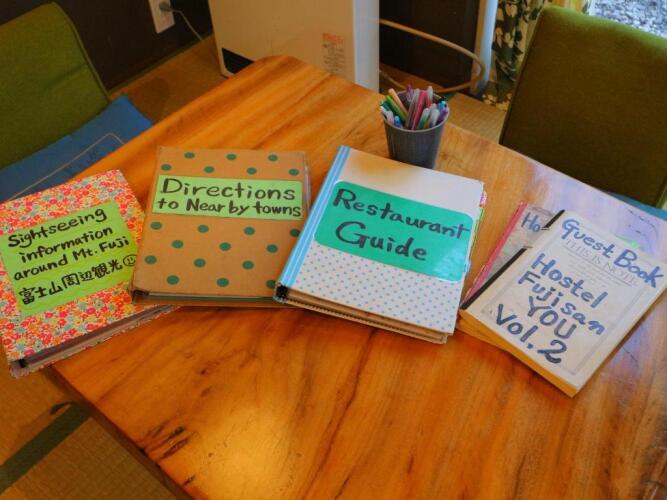 Sightseeing
information
around Mt. Fuji
富士山周辺観光
Directions
to Near by towns
Restaurant
Guide
Ho
Guest Book
THIS IS NOTE
Hostel
Fujisan
YOU
Vol. 2